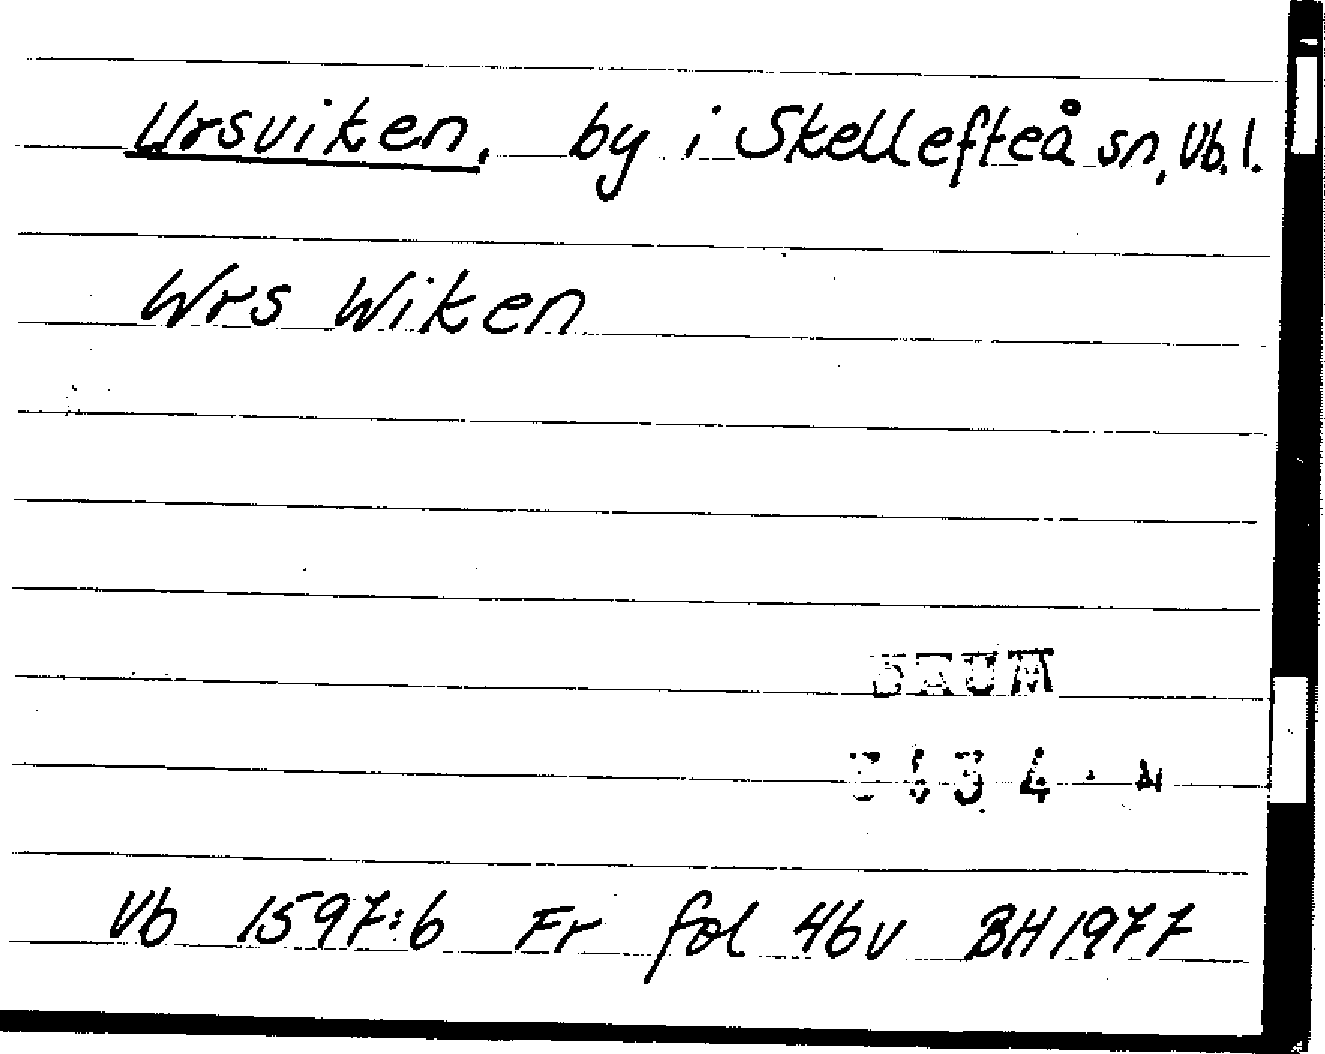 Ursviken, by i Skellefteå sn, Vb. l.
Wrs Wiken
DAUM
Vb 1597:6 Fr fol 46v BH 1977